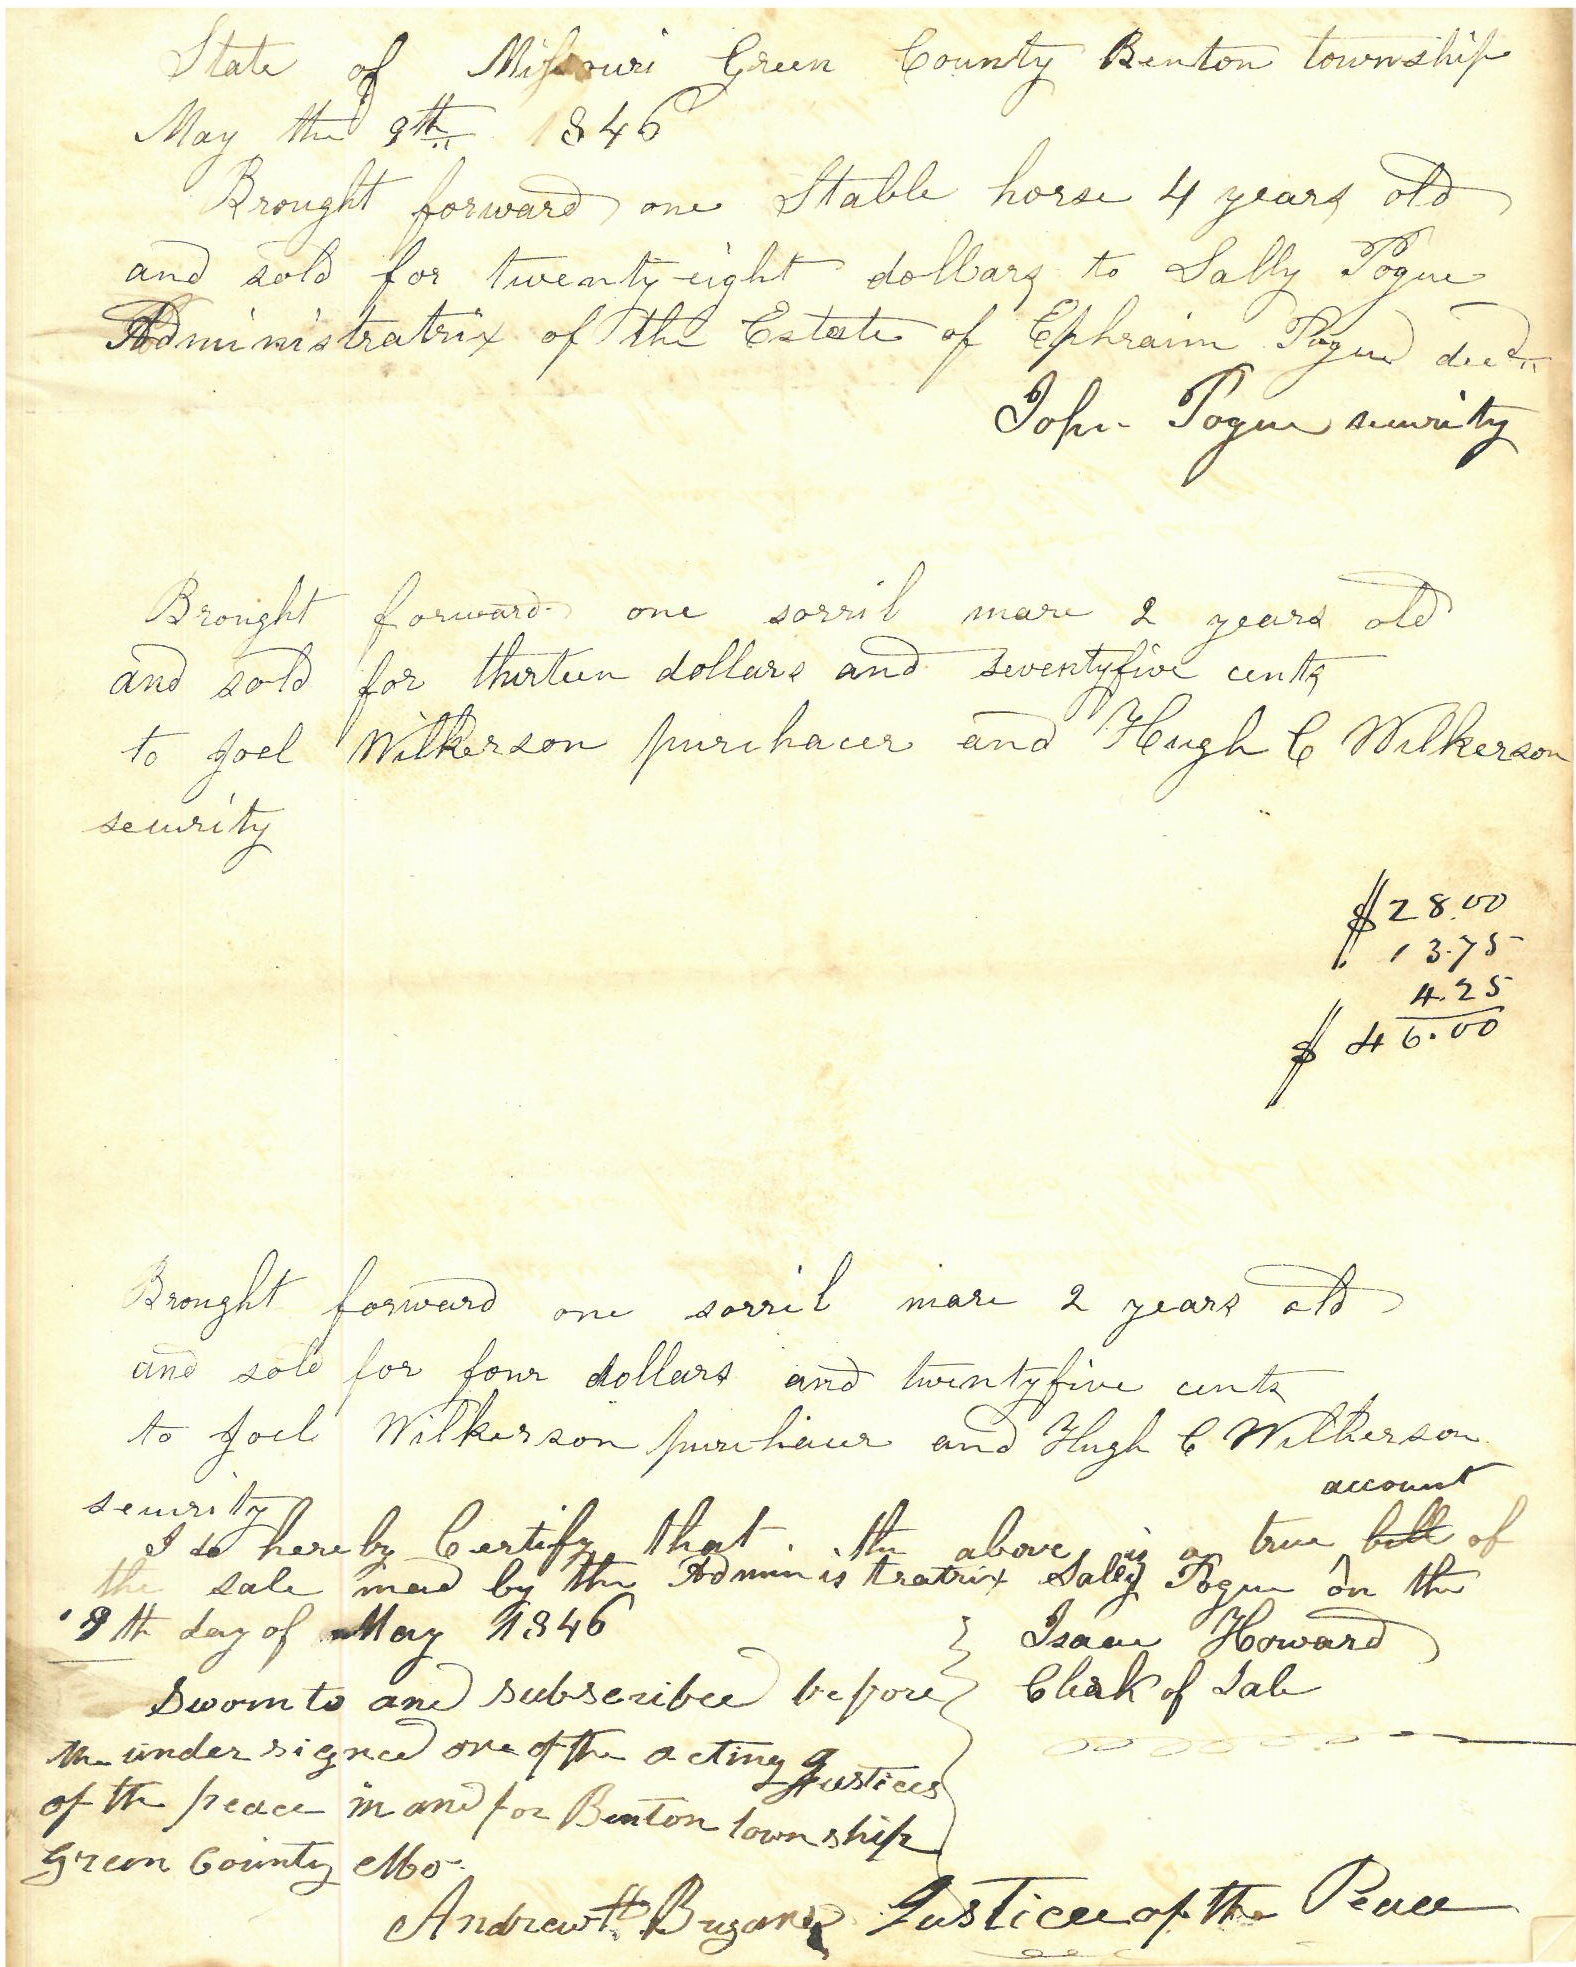 State of Missouri Green County Benton township
May the 9th 1846
Brought forward one Stable horse 4 years old
and sold for twenty-eight dollars to Sally Pogue
Administratrix of the Estate of Ephraim Pogue decd
John Pogue security
Brought forward one sorril mare 2 years old
and sold for thirteen dollars and seventyfive cents
to Joel Wilkerson purchacer and Hugh C Wilkerson
security
$28.00
13.75
4.25
$ 46.00
Brought forward one sorril mare 2 years old
and sold for four dollars and twentyfive cents
to Joel Wilkerson purchacer and Hugh C Wilkerson
security
account
I do hereby Certify that the above is a true bill of
the sale mad by the Administratrix Sally Pogue on the
9th day of May 1846
Isaac Howard
Clerk of Sale
Sworn to and subscribed before
the undersigned one of the acting Justices
of the peace in and for Benton township
Green County Mo
Andrew H Justice of the Peace